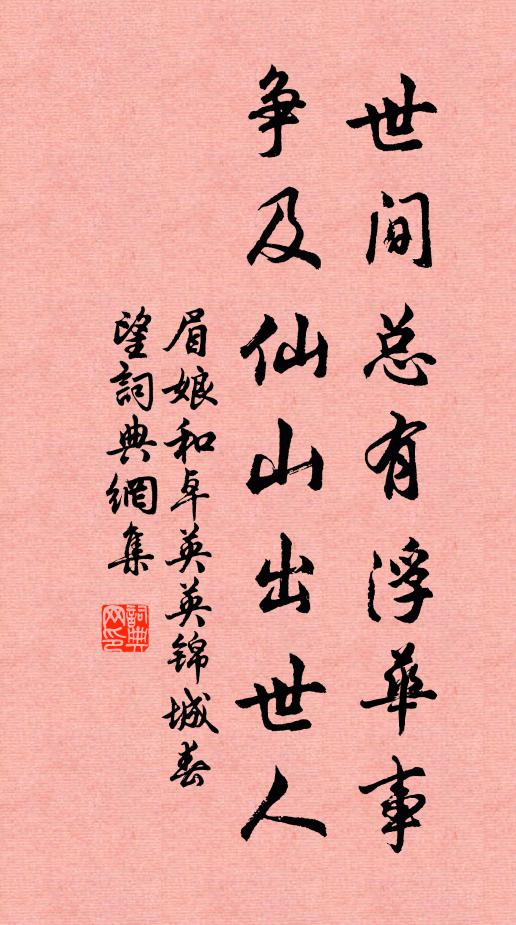 世间总有浮华事
争及仙山出世人
眉娘和卓英英锦城春
望词典網集
詞典网印